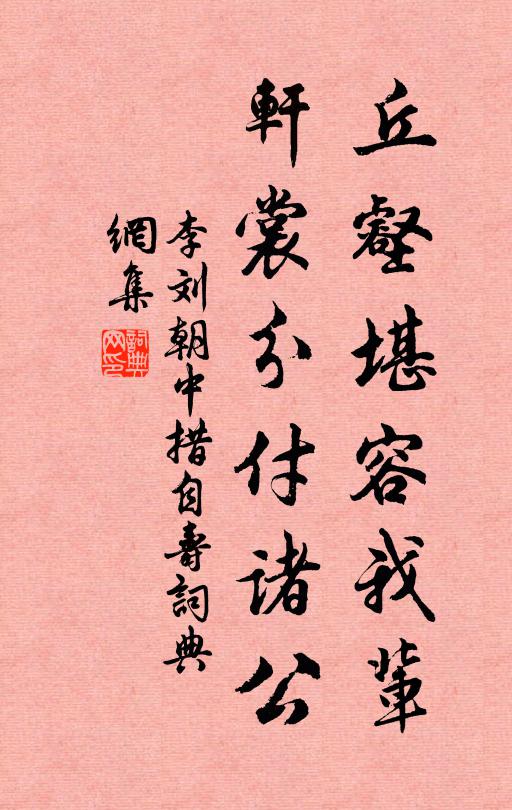 丘壑堪容我輩
軒裳分付諸公
李刘朝中措自壽詞典
網集
詞典網印